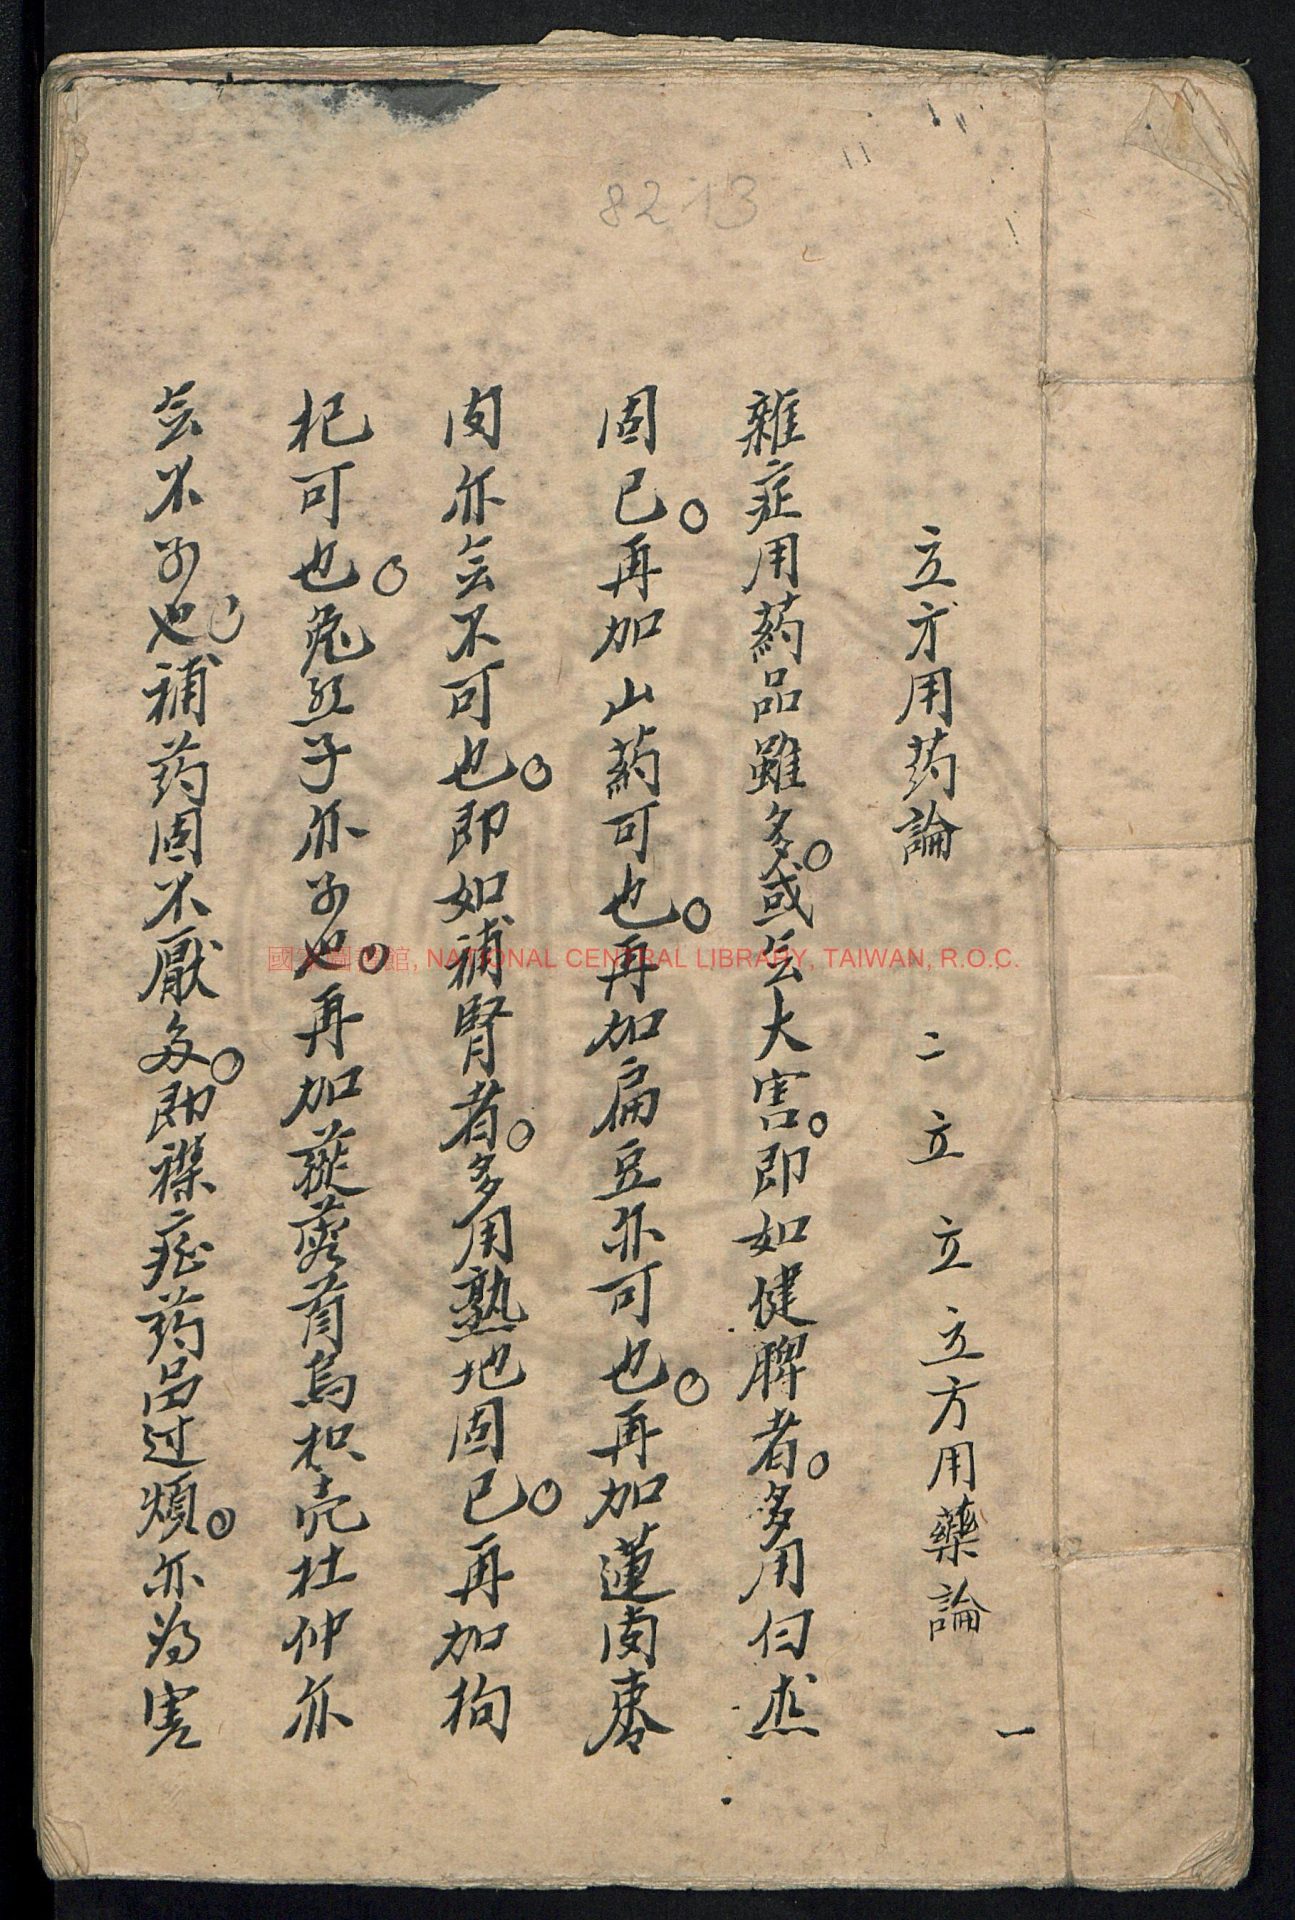 8213
立方用药論 二 立 立 立方用藥論
一
雜症用药品雖多。或无大害。即如健脾者。多用白朮
固已。再加山药可也。再加扁豆亦可也。再加蓮肉棗
肉亦无不可也。即如補腎者。多用熟地固已。再加枸
杞可也。兔丝子亦可也。再加蓯蓉首烏枳壳杜仲亦
无不可也。補药固不厭多。即襍症药品过煩。亦为害
國家圖書館, NATIONAL CENTRAL LIBRARY, TAIWAN, R.O.C.